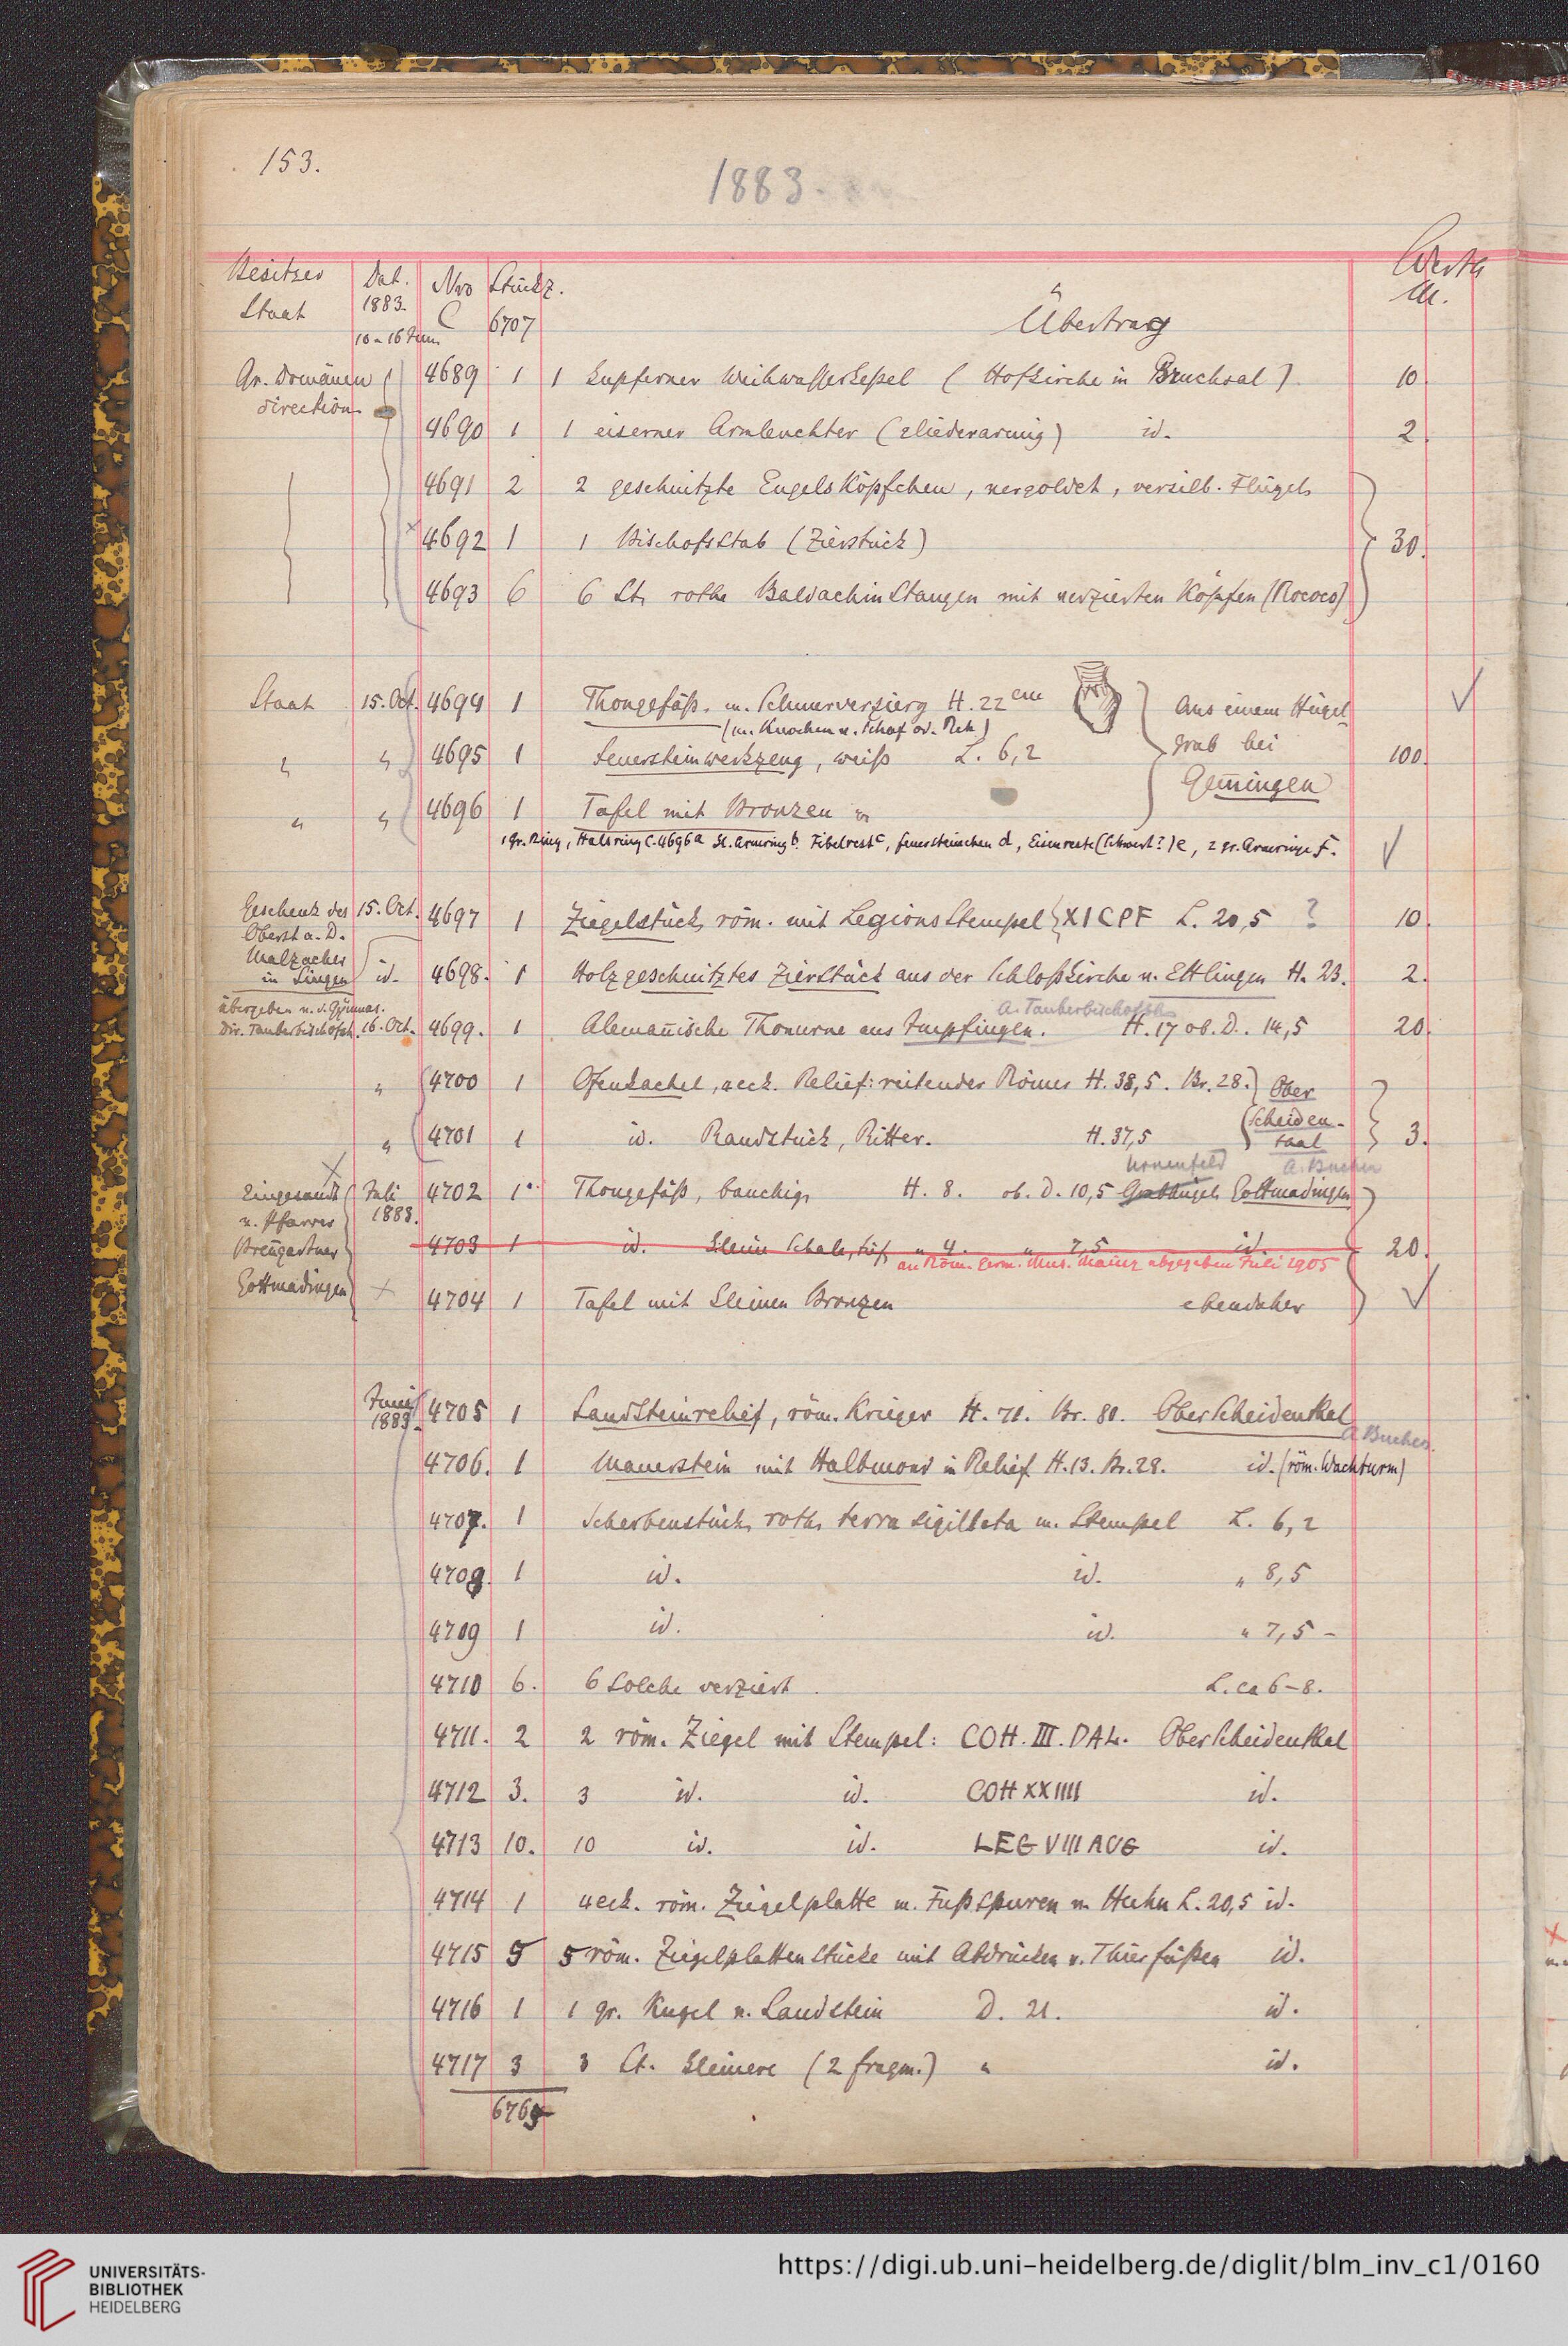 153.
1883.
Besitzer Dat. Nro Stückz. Werth
Staat 1883. C 6707 Übertrag M.
10-16 Juni
Gr. Domänen 4689 1 1 kupferner Weihwasserkeßel (Hofkirche in Bruchsal) 10
direction
4690 1 1 eiserner Armleuchter (gliederarmig) id. 2
4691 2 2 geschnitzte EngelsKöpfchen, vergoldet, versilb. Flügel
4692 1 1 BischofsStab (Zierstück) 30.
4693 6 6 St. rothe BaldachinStangen mit verzierten Köpfen (Rococo)
Staat 15. Oct. 4694 1 Thongefäß. m. Schnurverzierg H. 22 cm Aus einem Hügel
(m. Knochen v. Schaf od. Reh)
" " 4695 1 Feuersteinwerkzeug, weiß L. 6,2 grab bei 100.
Gem̄ingen
" " 4696 1 Tafel mit Bronzen
1 gr. Ring, Halsring C. 4696 a kl. Armring b. Fibelrest c, feuersteinchen d, Eisenreste (Schwert?) e, 2 gr. Armringe f.
Geschenk des 15. Oct. 4697 1 Ziegelstück röm. mit LegionsStempel XI CPF L. 20,5 ? 10
Oberst a. D.
Malzacher
in Singen id. 4698. 1 Holzgeschnitztes ZierStück aus der Schloßkirche v. Ettlingen H. 23. 2.
übergeben v. d. Gymnas. A. Tauberbischofsh.
Dir. Tauberbischofsh. 16. Oct. 4699. 1 Alemañische Thonurne aus Impfingen. H. 17 ob. D. 14,5 20.
" 4700 1 Ofenkachel, 4eck. Relief: reitender Römer H. 38,5. Br. 28. Ober
Scheiden-
" 4701 1 id. Randstück, Ritter. H. 37,5 taal 3.
Urnenfeld A. Buchen
Eingesandt Juli 4702 1 Thongefäß, bauchig, H. 8. ob. D. 10,5 Grabhügel Gottmadingen
v. Pfarrer 1883.
Breügartner 4703 1 id. kleine Schale, tief " 4. " 7,5 id. 20.
an Röm. Germ. Mus. Mainz abgegeben Juli 1905
Gottmadingen 4704 1 Tafel mit kleinen Bronzen ebendaher
Juni 4705 1 SandSteinrelief, röm. Krieger H. 71. Br. 80. OberScheidenthal
1883. A Buchen.
4706. 1 Mauerstein mit Halbmond in Relief H. 13. Br. 28. id. (röm. Wachturm)
4707. 1 Scherbenstück, roth, terra sigillata m. Stempel L. 6,2
4708. 1 id. id. " 8,5
4709 1 id. id. " 7,5 -
4710 6. 6 Solche verziert. L. ca 6-8.
4711. 2 2 röm. Ziegel mit Stempel: COH. III. DAL. OberScheidenthal
4712 3. 3 id. id. COH XXIIII id.
4713 10. 10 id. id. LEG VIII AUG id.
4714 1 4eck. röm. Ziegelplatte m. Fußspuren v. Huhn L. 20,5 id.
4715 5 5 röm. ZiegelplattenStücke mit Abdrücken v. Thierfüßen id.
4716 1 1 gr. Kugel v. Sandstein D. 21. id.
4717 3 3 St. kleinere (2 fragm.) " id.
6765
UNIVERSITÄTS-
BIBLIOTHEK
HEIDELBERG
https://digi.ub.uni-heidelberg.de/diglit/blm_inv_c1/0160